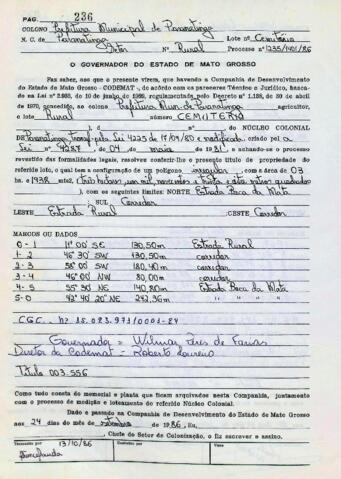 PAG. 236
COLONO Prefeitura Municipal de Paranatinga
N. C. de Paranatinga Lote nº Cemitério
Setor Nº Rural Processo nº 1235/1401/86
O GOVERNADOR DO ESTADO DE MATO GROSSO
Faz saber, aos que o presente virem, que havendo a Companhia de Desenvolvimento
do Estado de Mato Grosso - CODEMAT -, de acôrdo com os pareceres Técnico e Jurídico, basea-
do pelo Decreto nº 1.138, de 29 de abril
de 1970, concedido, ao colono Prefeitura Mun. de Paranatinga agricultor,
o lote Rural CEMITÉRIO
do NÚCLEO COLONIAL
DE Paranatinga Lei 4225 de 17/09/80 e modificado, criado pela
Lei nº 4287, de 04 de maio de 1981, e achando-se o processo
revestido das formalidades legais, resolveu conferir-lhe o presente título de propriedade do
referido lote, o qual tem a configuração de um polígono irregular com a área de 03
hs e 1938 mts2,
), com os seguintes limites: NORTE Estrada Boca da Mata
SUL Corredor
LESTE Estrada Rural OESTE Corredor
MARCOS OU DADOS
0 - 1 11º 00' SE 130,50m Estrada Rural
1 - 2 46º 30' SW 130,50m corredor
2 - 3 58º 00' SW 180,40m corredor
3 - 4 46º 00' NW 80,00m corredor
4 - 5 55º 30' NE 140,80m Estrada Boca da Mata
5 - 0 42º 40' 20" NE 242,36m " " " "
CGC. nº 15.023.971/0001-24
Governador = Wilmar Peres de Farias
Diretor da Codemat - Roberto Loureiro
Título 003.556
Como tudo consta do memorial e planta que ficam arquivados nesta Companhia, juntamente
com o processo de medição e loteamento do referido Núcleo Colonial.
Dado e passado na Companhia de Desenvolvimento do Estado de Mato Grosso
aos 24 dias do mês de setembro de 1986, Eu,
, Chefe do Setor de Colonização, o fiz escrever e assino.
Transcrito por 13/10/86 Conferido por Visto